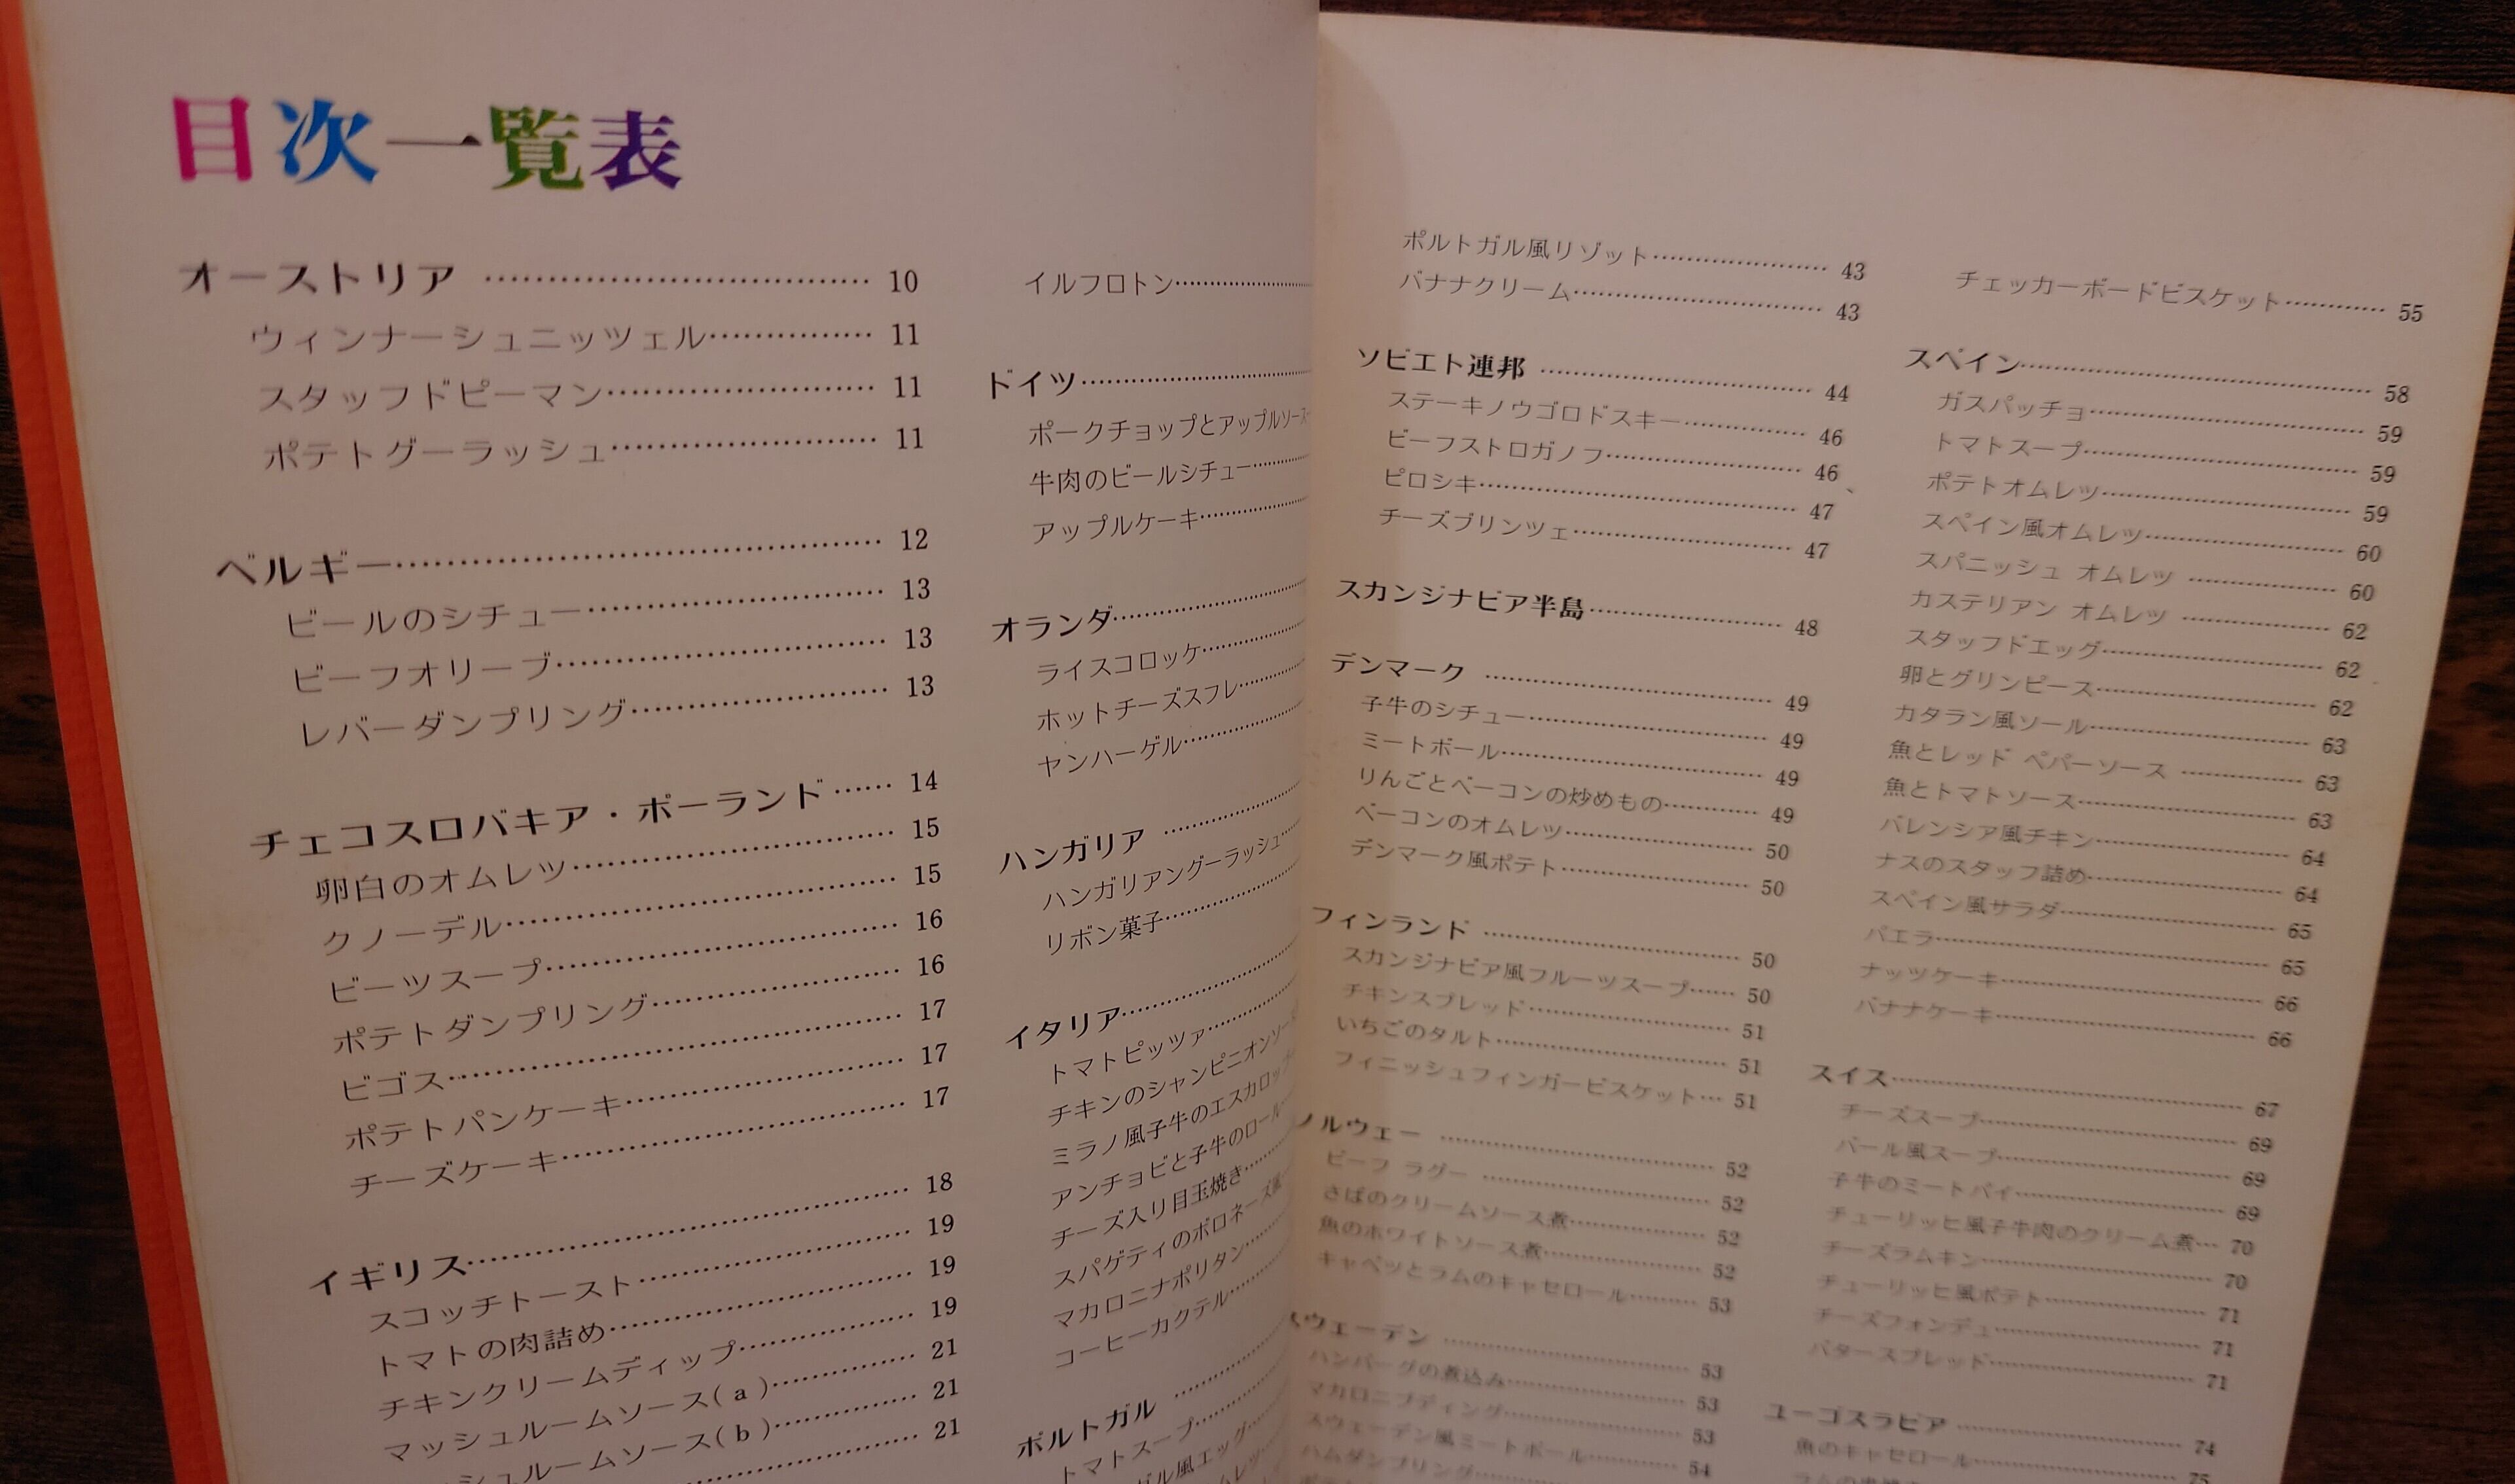 目次一覧表
オーストリア …………………………… 10
ウィンナーシュニッツェル…………… 11
スタッフドピーマン…………………… 11
ポテトグーラッシュ…………………… 11
ベルギー……………………………………… 12
ビールのシチュー……………………… 13
ビーフオリーブ………………………… 13
レバーダンプリング…………………… 13
チェコスロバキア・ポーランド …… 14
卵白のオムレツ………………………… 15
クノーデル……………………………… 15
ビーツスープ…………………………… 16
ポテトダンプリング…………………… 16
ビゴス…………………………………… 17
ポテトパンケーキ……………………… 17
チーズケーキ…………………………… 17
イギリス……………………………………… 18
スコッチトースト……………………… 19
トマトの肉詰め………………………… 19
チキンクリームディップ……………… 19
マッシュルームソース(a)…………… 21
シュルームソース(b)…………… 21
…………………… 21
イルフロトン……………
ドイツ……………………
ポークチョップとアップルソース
牛肉のビールシチュー……
アップルケーキ…………
オランダ…………………
ライスコロッケ…………
ホットチーズスフレ……
ヤンハーゲル……………
ハンガリア ……………
ハンガリアングーラッシュ…
リボン菓子………………
イタリア…………………
トマトピッツァ…………
チキンのシャンピニオンソー
ミラノ風子牛のエスカロッ
アンチョビと子牛のロール
チーズ入り目玉焼き……
スパゲティのボロネーズ風
マカロニナポリタン……
コーヒーカクテル………
ポルトガル ……………
トマトスープ……………
ガル風エッグ……
ムレツ……
ポルトガル風リゾット………………… 43
バナナクリーム………………………… 43
ソビエト連邦 …………………………… 44
ステーキノウゴロドスキー…………… 46
ビーフストロガノフ…………………… 46
ピロシキ………………………………… 47
チーズブリンツェ……………………… 47
スカンジナビア半島…………………… 48
デンマーク ……………………………… 49
子牛のシチュー………………………… 49
ミートボール…………………………… 49
りんごとベーコンの炒めもの………… 49
ベーコンのオムレツ…………………… 50
デンマーク風ポテト…………………… 50
フィンランド …………………………… 50
スカンジナビア風フルーツスープ…… 50
チキンスプレッド……………………… 51
いちごのタルト………………………… 51
フィニッシュフィンガービスケット… 51
ノルウェー ……………………………… 52
ビーフ ラグー ………………………… 52
さばのクリームソース煮……………… 52
魚のホワイトソース煮………………… 52
キャベツとラムのキャセロール……… 53
スウェーデン …………………………… 53
ハンバーグの煮込み…………………… 53
マカロニプディング…………………… 53
スウェーデン風ミートボール………… 54
ハムダンプリング………………
チェッカーボードビスケット………… 55
スペイン………………………………… 58
ガスパッチョ…………………………… 59
トマトスープ…………………………… 59
ポテトオムレツ………………………… 59
スペイン風オムレツ…………………… 60
スパニッシュ オムレツ ……………… 60
カステリアン オムレツ ……………… 62
スタッフドエッグ……………………… 62
卵とグリンピース……………………… 62
カタラン風ソール……………………… 63
魚とレッド ペパーソース …………… 63
魚とトマトソース……………………… 63
バレンシア風チキン…………………… 64
ナスのスタッフ詰め…………………… 64
スペイン風サラダ……………………… 65
パエラ…………………………………… 65
ナッツケーキ…………………………… 66
バナナケーキ…………………………… 66
スイス…………………………………… 67
チーズスープ…………………………… 69
バール風スープ………………………… 69
子牛のミートパイ……………………… 69
チューリッヒ風子牛肉のクリーム煮… 70
チーズラムキン………………………… 70
チューリッヒ風ポテト………………… 71
チーズフォンデュ……………………… 71
バタースプレッド……………………… 71
ユーゴスラビア ……………………… 74
魚のキャセロール……………………… 75